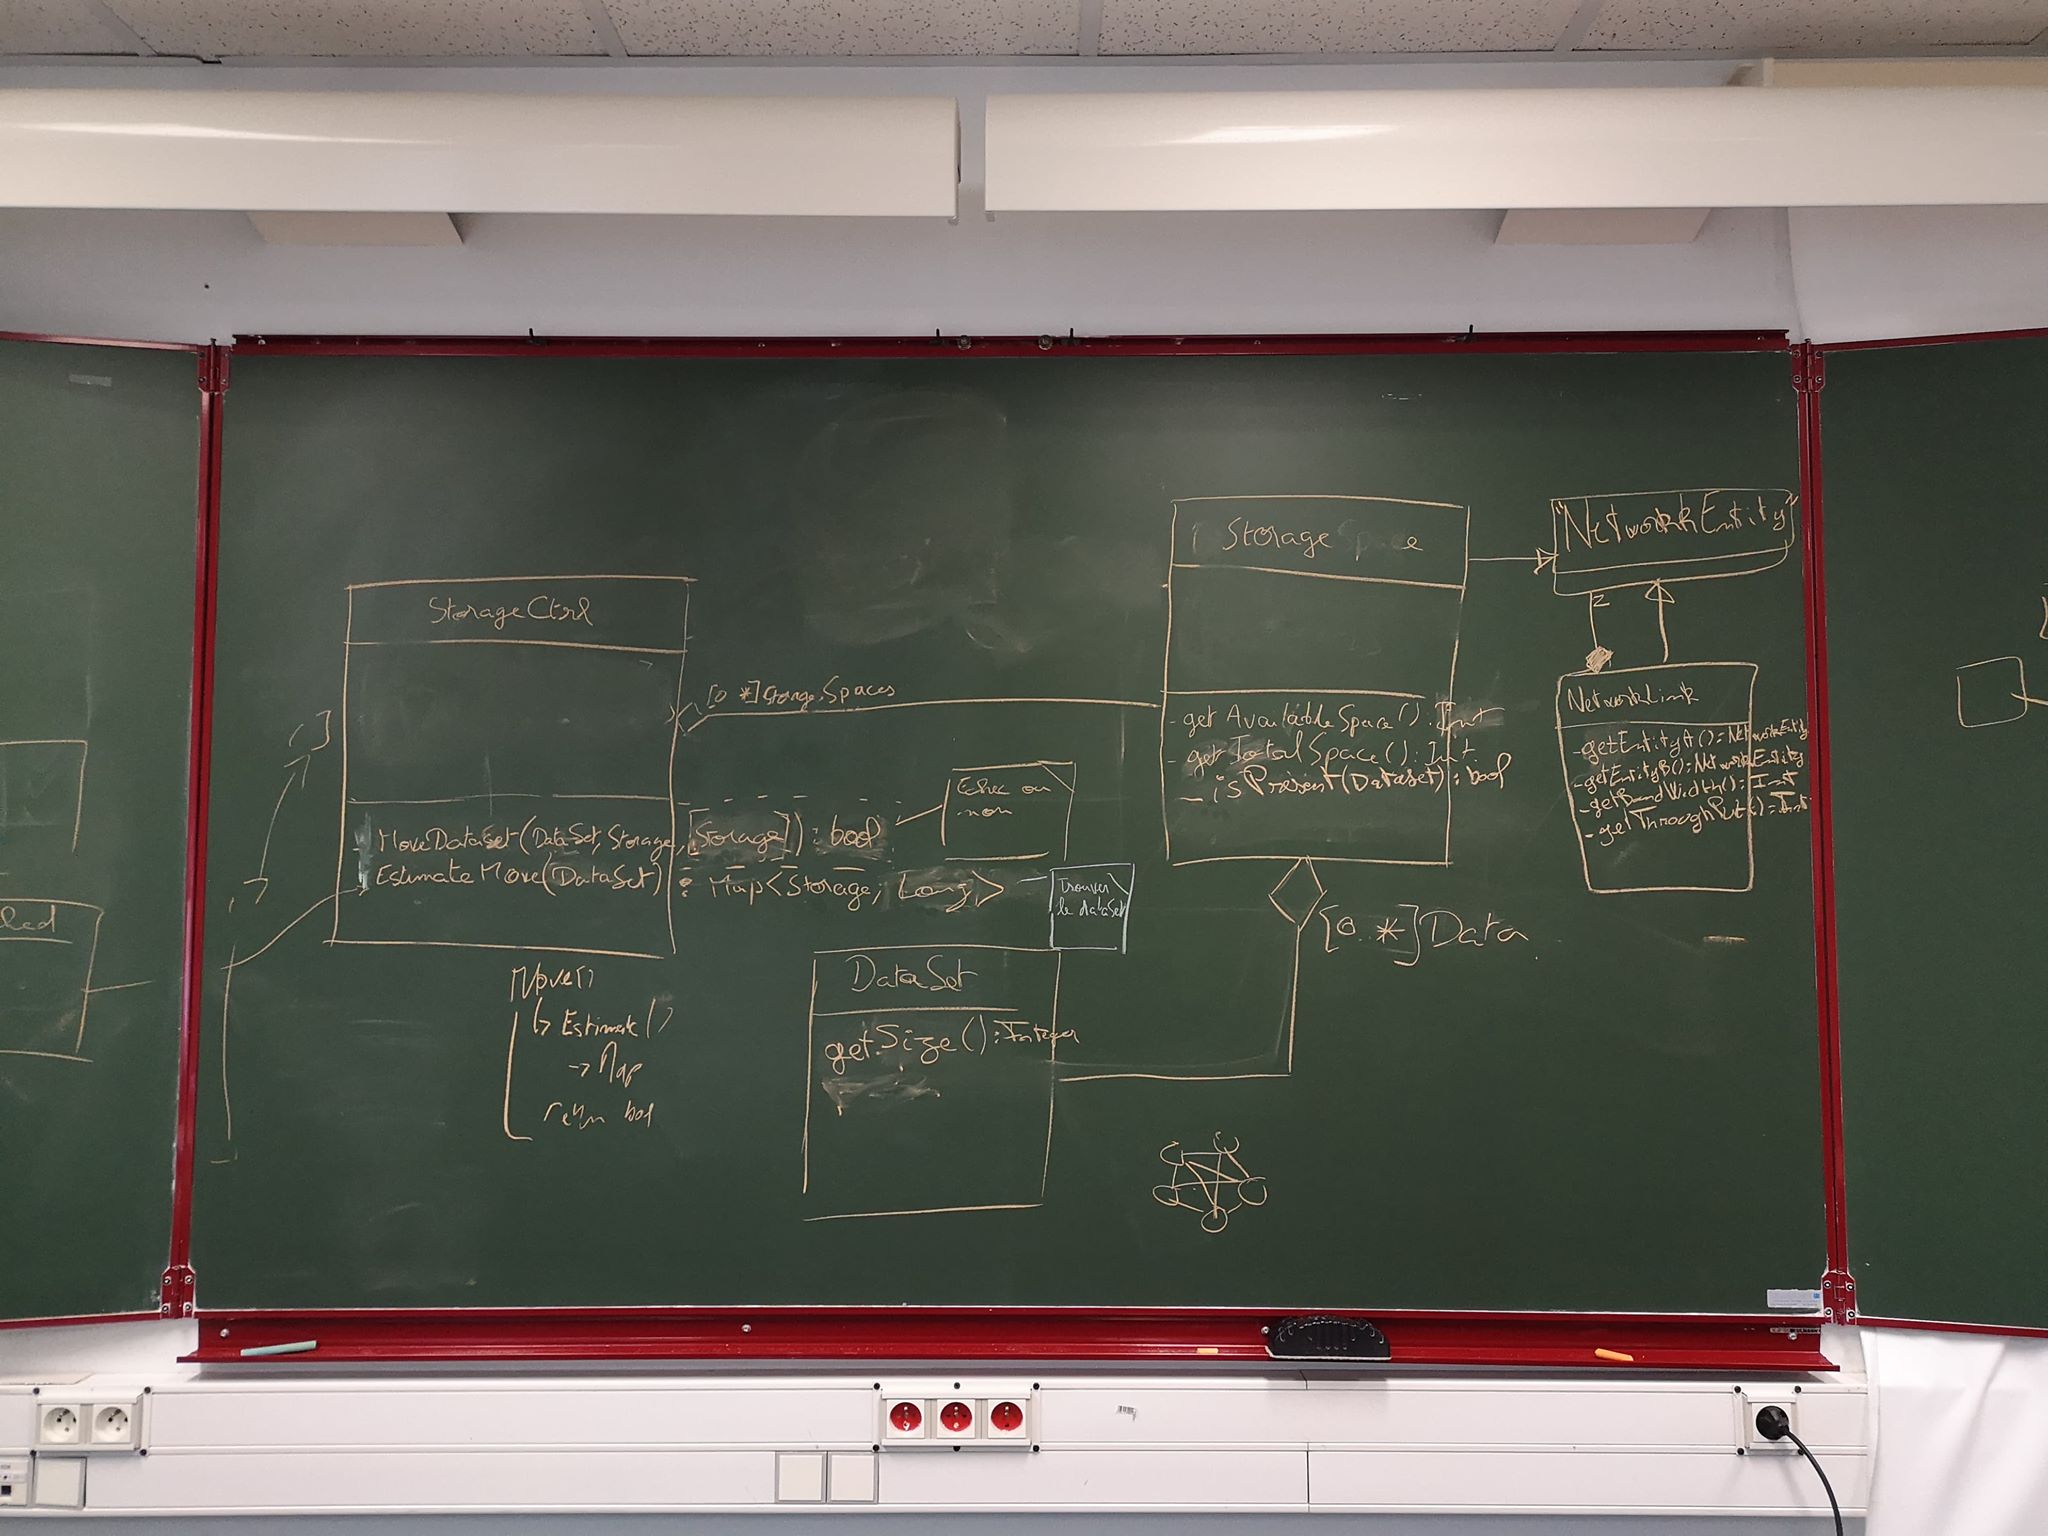 StorageCtrl
[0 *] StorageSpaces
- MoveDataSet(DataSet, Storage, [Storage]) : bool
- EstimateMove(DataSet) : Map<Storage, Long>
Echec ou
non
Trouver
le dataset
Move()
↳ Estimate()
→ Map
return bool
DataSet
getSize() : Integer
StorageSpace
- getAvailableSpace() : Int
- getTotalSpace() : Int
- isPresent(DataSet) : bool
[0..*] Data
"NetworkEntity"
2
NetworkLink
- getEntityA() : NetworkEntity
- getEntityB() : NetworkEntity
- getBandWidth() : Int
- getThroughPut() : Int